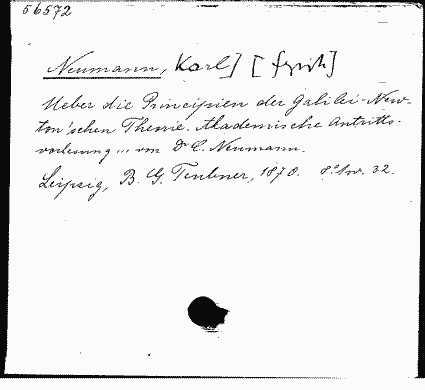 56572
Neumann, Karl] [fysik]
Ueber die Principien der Galilei-New-
ton'schen Theorie. Akademische Antritts-
vorlesung ... von Dr C. Neumann.
Leipzig, B. G. Teubner, 1870. 8:vo. 32.